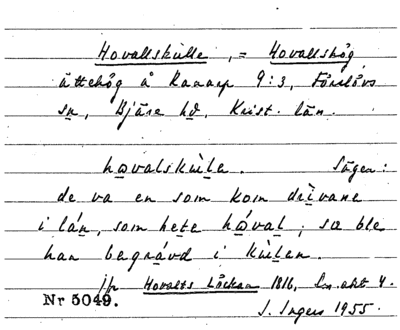 Hovallskulle, = Hovallshög,
ättehög å Ramarp 9:3, Förslövs
sn, Bjäre hd, Krist. län.
hovalskulle. Sägen:
de va en som kom drivane
i lán, som hete hóval, sæ ble
han begrávd i kúlen.
jfr Hovalls Låckan 1816, Lm. akt 4.
Nr 5049.
I. Ingers 1955.